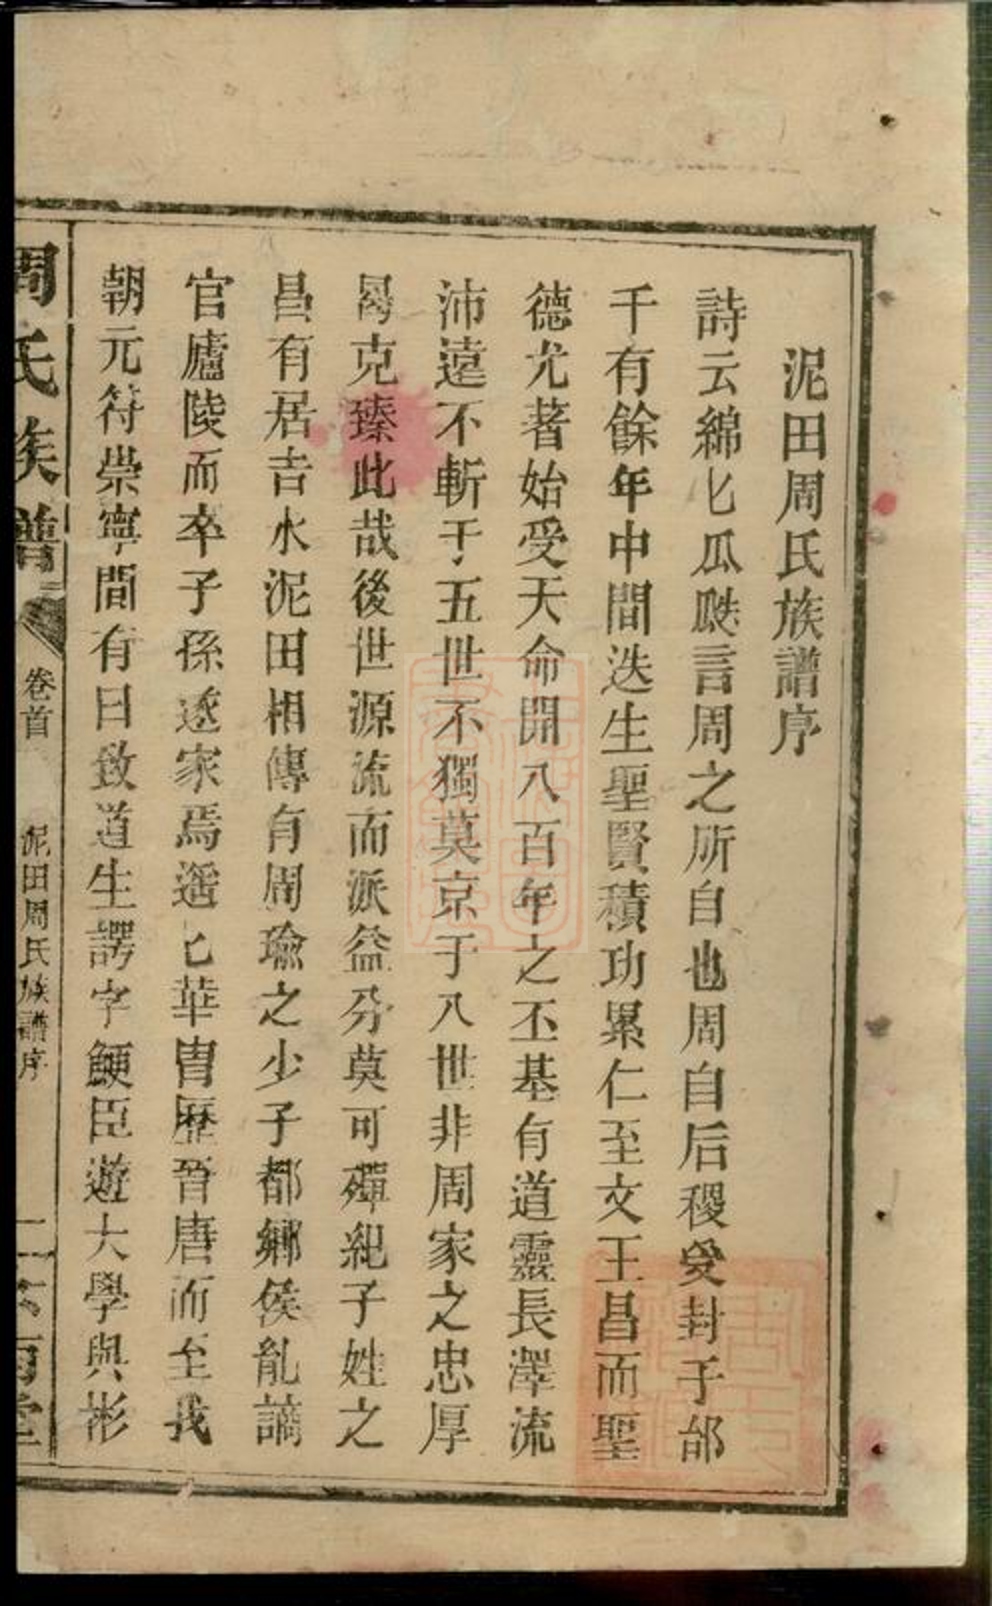 泥田周氏族譜序
詩云綿匕瓜瓞言周之所自也周自后稷受封于邰
千有餘年中間迭生聖賢積功累仁至文王昌而聖
德尤著始受天命開八百年之丕基有道靈長澤流
沛遠不斬于五世不獨莫京于八世非周家之忠厚
曷克臻此哉後世源流而派益分莫可殫紀子姓之
昌有居吉水泥田相傳有周瑜之少子都鄉侯胤謫
官廬陵而卒子孫遂家焉遥匕華胄歷晉唐而至我
朝元符崇寧間有曰敦道生諤字鯁臣遊大學與彬
周氏族譜
卷首
泥田周氏族譜序